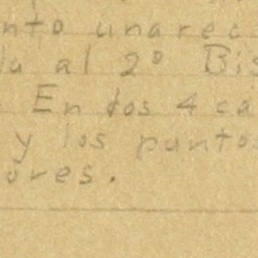 nto una rec
la al 2º Bis
En dos 4 ca
y los puntos
ores.